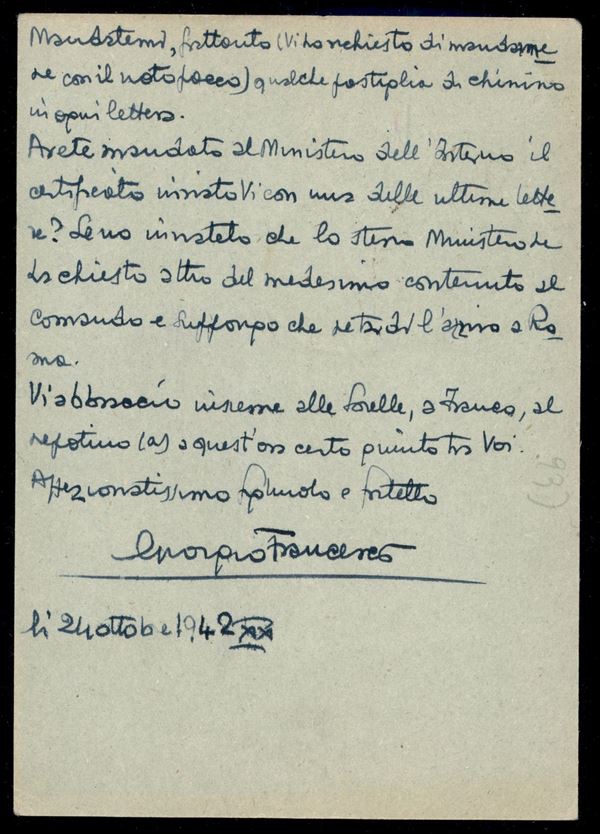 Mandatemi, frattanto (Vi ho richiesto di mandarme
ne con il noto pacco) qualche pastiglia di chinino
in ogni lettera.
Avete mandato al Ministero dell'Interno il
certificato inviatoVi con una delle ultime lette-
re? Se no inviatelo che lo stesso Ministero ne
ha chiesto altro del medesimo contenuto al
Comando e suppongo che ritardi l'arrivo a Ro-
ma.
Vi abbraccio insieme alle sorelle, a Franca, al
nepotino (a) a quest'ora certo giunto tra Voi.
Affezionatissimo figliuolo e fratello
Giorgio Francesco
li 24 ottobre 1942 XX
937